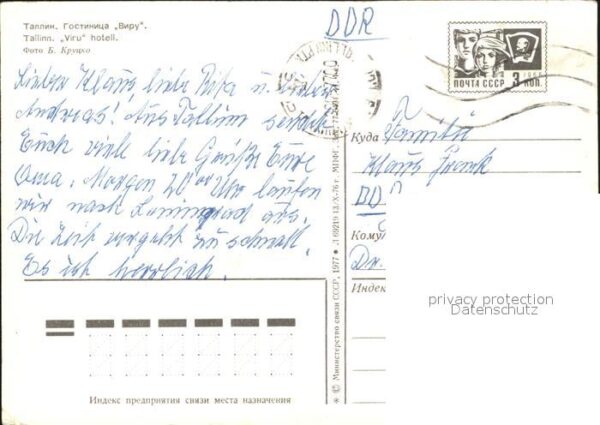 Таллин. Гостиница „Виру".
Tallinn. „Viru" hotell.
Фото Б. Круцко
DDR
Lieber Klaus, liebe Rita u. lieber
Andreas! Aus Tallinn sendet
Euch viele liebe Grüße Eure
Oma. Morgen 20°° Uhr laufen
wir nach Leningrad aus.
Die Zeit vergeht zu schnell.
Es ist herrlich.
ПОЧТА СССР 3 КОП.
1966
Куда Familie
Klaus Frank
DD
Кому
Dr.
Индек
privacy protection
Datenschutz
Индекс предприятия связи места назначения
© Министерство связи СССР, 1977